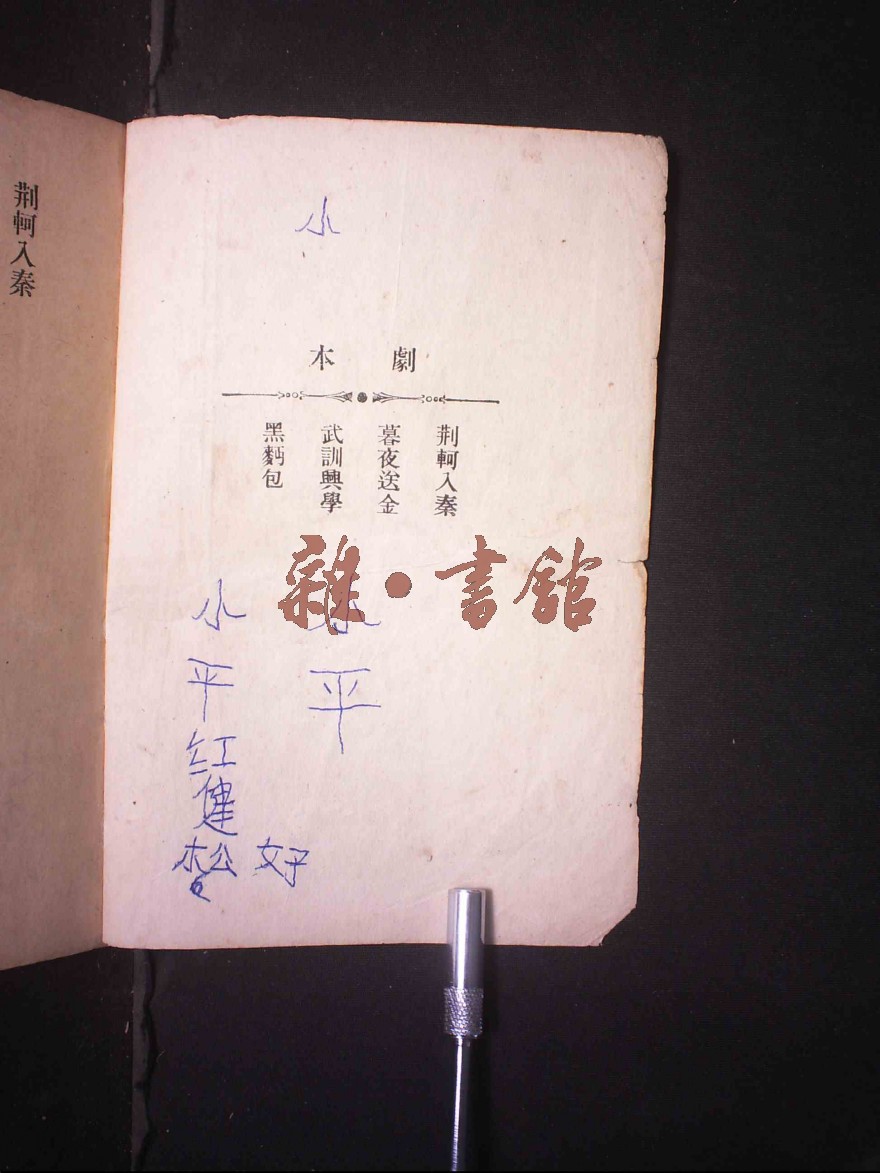 荆軻入秦
小
劇本
荆軻入秦
暮夜送金
武訓興學
黑麪包
雜·書館
小平
小平红健松
好